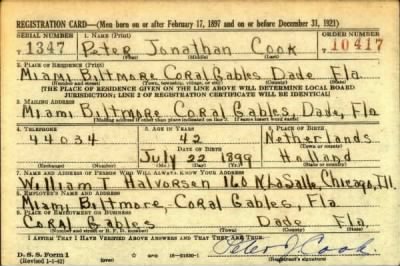 REGISTRATION CARD—(Men born on or after February 17, 1897 and on or before December 31, 1921)
SERIAL NUMBER 1. NAME (Print) ORDER NUMBER
T 1347 Peter Jonathan Cook 10417
(First) (Middle) (Last)
2. PLACE OF RESIDENCE (Print)
Miami Biltmore Coral Gables Dade Fla
(Number and street) (Town, township, village, or city) (County) (State)
[THE PLACE OF RESIDENCE GIVEN ON THE LINE ABOVE WILL DETERMINE LOCAL BOARD
JURISDICTION; LINE 2 OF REGISTRATION CERTIFICATE WILL BE IDENTICAL]
3. MAILING ADDRESS
Miami Biltmore Coral Gables, Dade, Fla
(Mailing address if other than place indicated on line 2. If same insert word same)
4. TELEPHONE 5. AGE IN YEARS 6. PLACE OF BIRTH
44034 42 Netherlands
DATE OF BIRTH (Town or county)
July 22 1899 Holland
(Exchange) (Number) (Mo.) (Day) (Yr.) (State or country)
7. NAME AND ADDRESS OF PERSON WHO WILL ALWAYS KNOW YOUR ADDRESS
William Halvorsen 160 N. LaSalle, Chicago, Ill.
8. EMPLOYER'S NAME AND ADDRESS
Miami Biltmore, Coral Gables, Fla
9. PLACE OF EMPLOYMENT OR BUSINESS
Coral Gables Dade Fla.
(Number and street or R. F. D. number) (Town) (County) (State)
I AFFIRM THAT I HAVE VERIFIED ABOVE ANSWERS AND THAT THEY ARE TRUE.
D. S. S. Form 1
(Revised 1-1-42) (Registrant's signature)
Peter J Cook